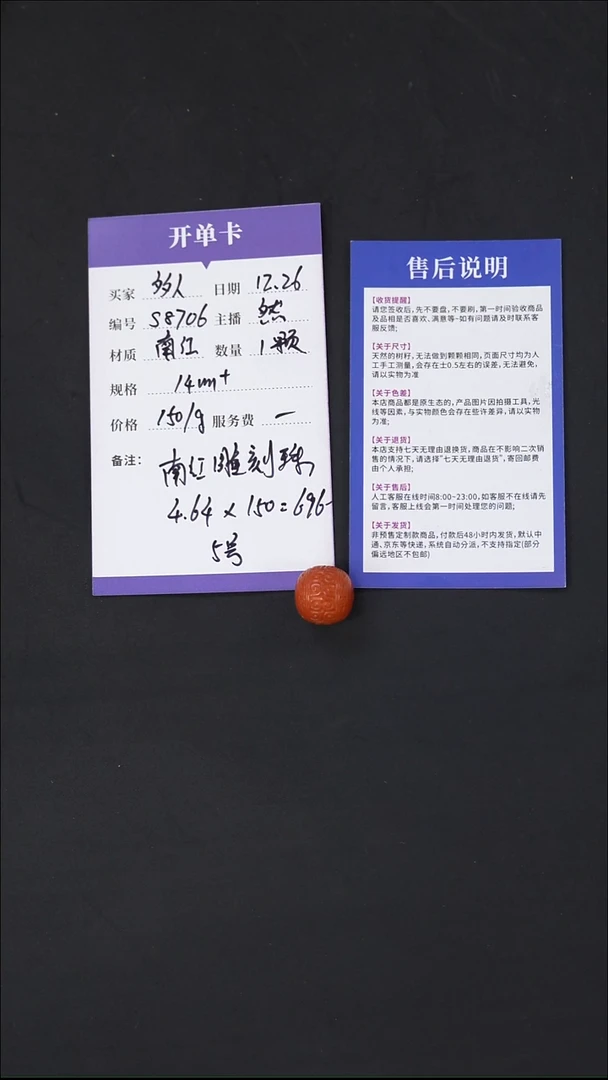 开单卡
买家 多人 日期 12.26
编号 S8706 主播 然
材质 南红 数量 1颗
规格 14mm+
价格 150/g 服务费 一
备注： 南红雕刻珠
4.64 x 150 = 696-
5号
售后说明
【收货提醒】
请您签收后,先不要盘,不要刷,第一时间验收商品
及品相是否喜欢、满意等~如有问题请及时联系客
服反馈;
【关于尺寸】
天然的树籽,无法做到颗颗相同,页面尺寸均为人
工手工测量,会存在士0.5左右的误差,无法避免,
请以实物为准
【关于色差】
本店商品都是原生态的,产品图片因拍摄工具,光
线等因素,与实物颜色会存在些许差异,请以实物
为准;
【关于退货】
本店支持七天无理由退换货,商品在不影响二次销
售的情况下,请选择"七天无理由退货",寄回邮费
由个人承担;
【关于售后】
人工客服在线时间8:00~23:00,如客服不在线请先
留言,客服上线会第一时间处理您的问题;
【关于发货】
非预售定制款商品,付款后48小时内发货,默认中
通、京东等快递,系统自动分派,不支持指定(部分
偏远地区不包邮)